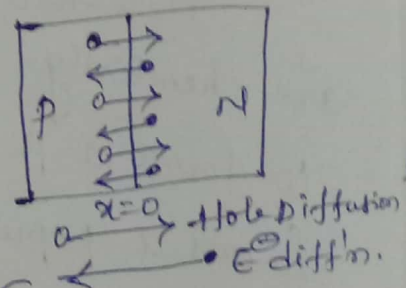 P N
x=0
Hole Diffusion
E⊖ diff'n.